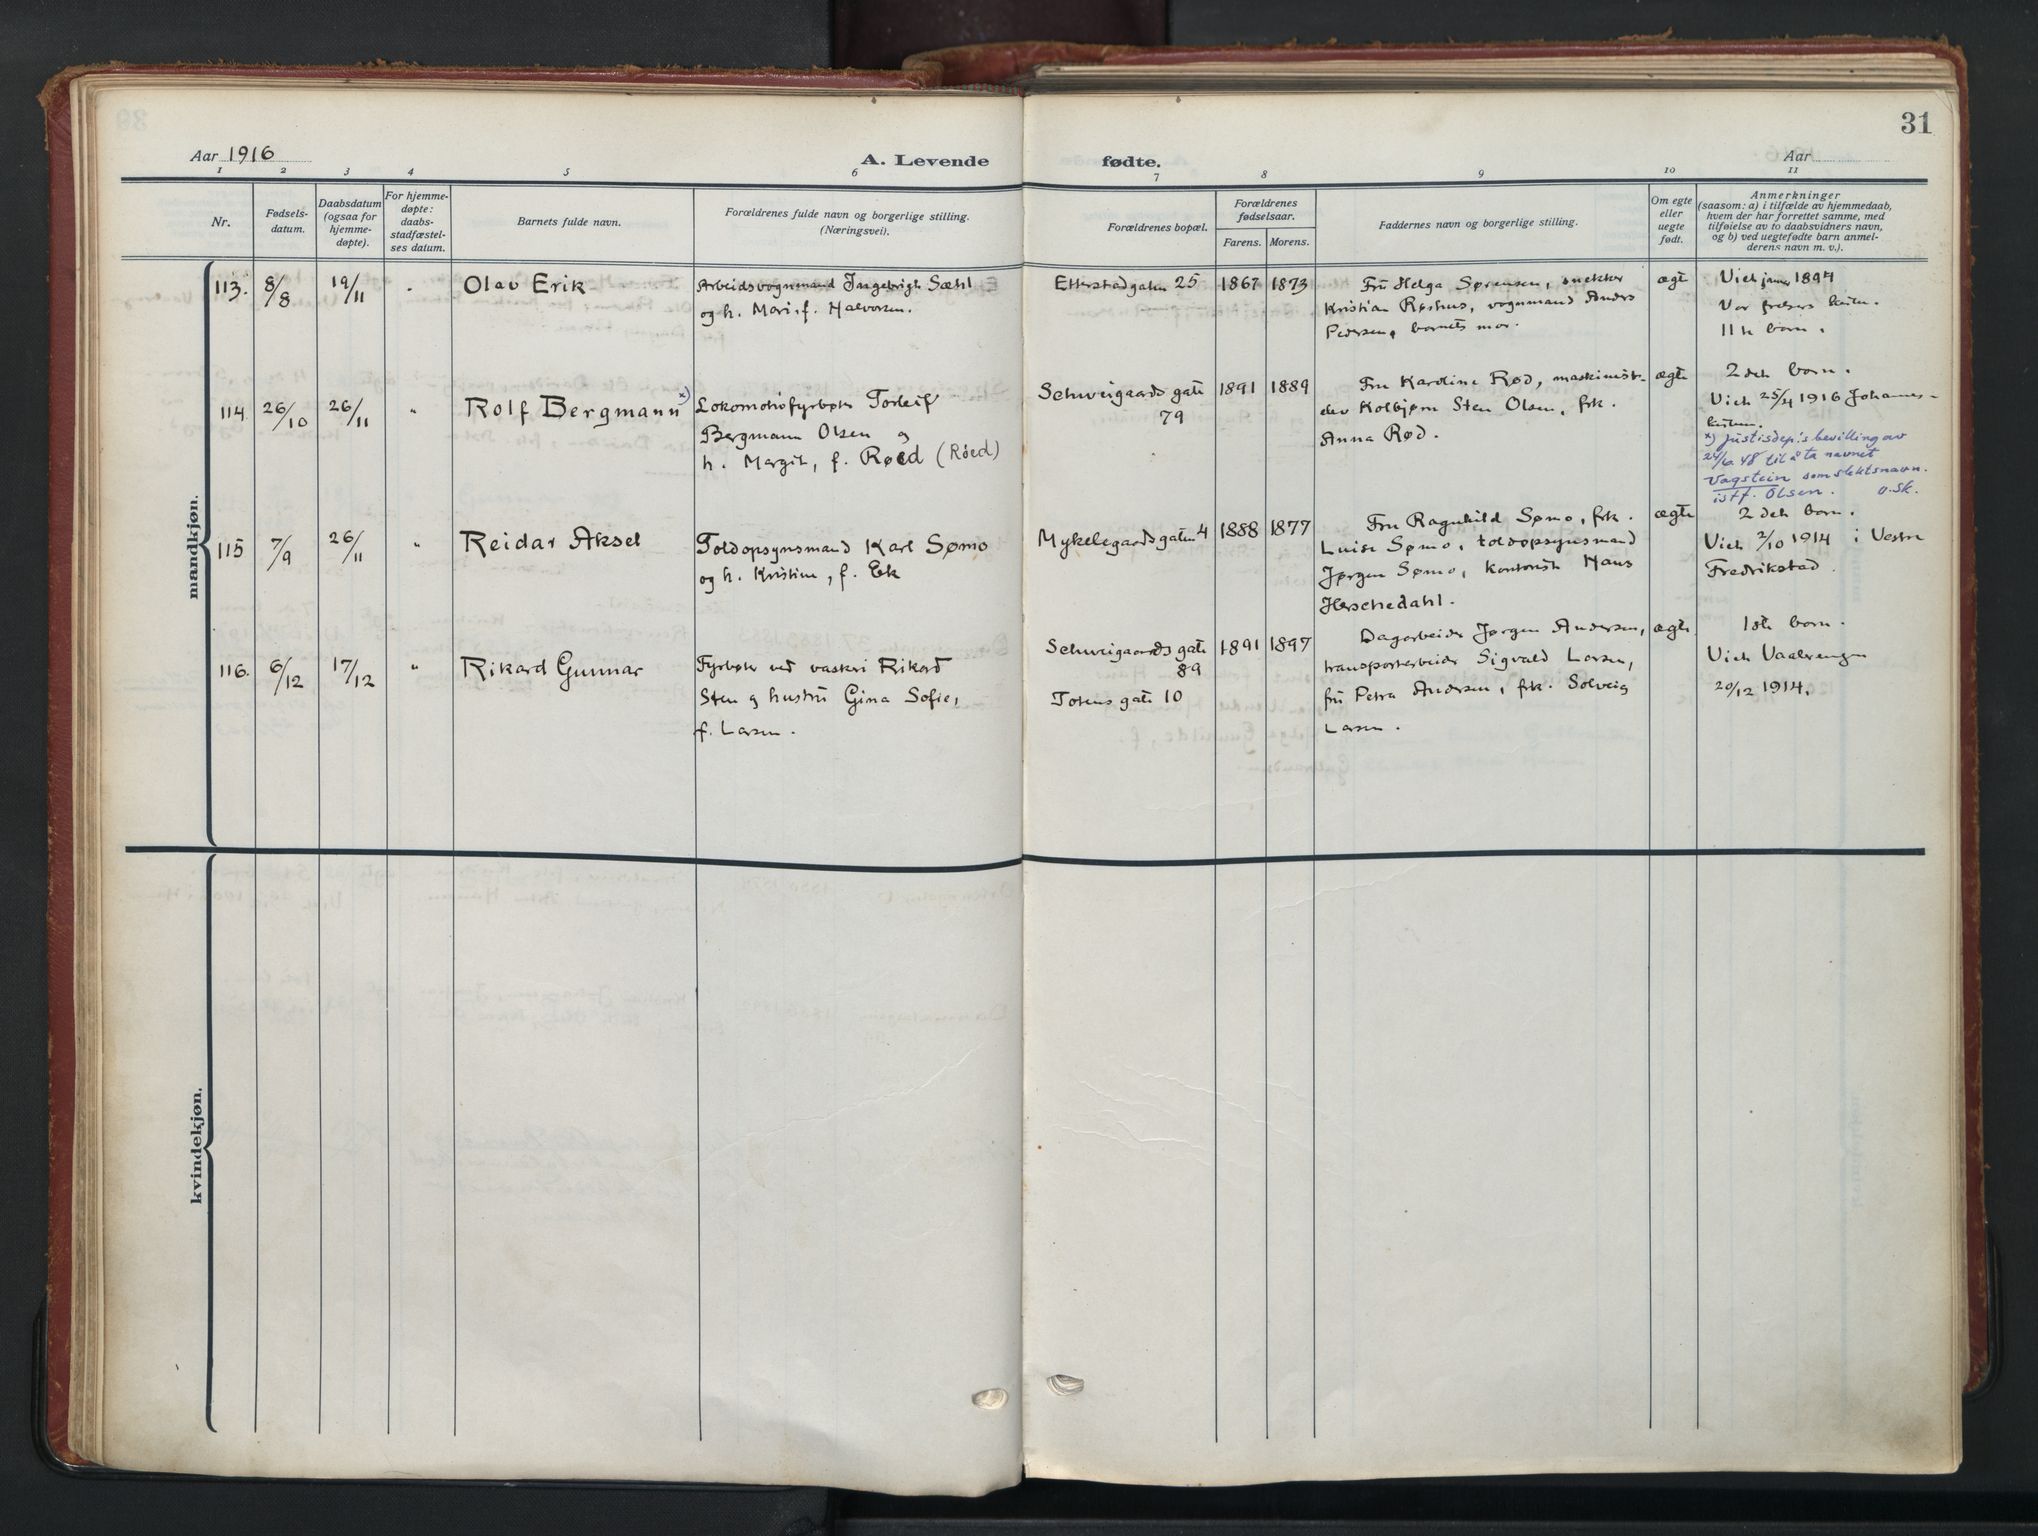 31
Aar 1916
A. Levende fødte.
Aar
1 2 3 4 5 6 7 8 9 10 11
Nr.
Fødsels-
datum.
Daabsdatum
(ogsaa for
hjemme-
døpte).
For hjemme-
døpte:
daabs-
stadfæstel-
ses datum.
Barnets fulde navn.
Forældrenes fulde navn og borgerlige stilling.
(Næringsvei).
Forældrenes bopæl.
Forældrenes
fødselsaar.
Farens. Morens.
Faddernes navn og borgerlige stilling.
Om egte
eller
uegte
født.
Anmerkninger
(saasom: a) i tilfælde av hjemmedaab,
hvem der har forrettet samme, med
tilføielse av to daabsvidners navn,
og b) ved uegtefødte barn anmel-
derens navn m. v.).
mandkjøn.
113. 8/8 19/11 Olav Erik
Arbeidsvognmand Ingebrigt Sæhl
og h. Mari, f. Halvorsen.
Etterstadgaten 25
1867 1873
Fru Helga Sørensen, snekker
Kristian Røshus, vognmand Anders
Pedersen, barnets mor.
ægte
Viet januar 1894
Vor frelsers kirken.
11te barn.
114. 26/10 26/11 " Rolf Bergmann x)
Lokomotivfyrbøter Torleif
Bergmann Olsen og
h. Margit, f. Røed (Röed)
Schweigaards gate
79
1891 1889
Fru Karoline Rød, maskinist-
elev Kolbjørn Sten Olsen, frk.
Anna Rød.
ægte
2det barn.
Viet 25/4 1916 Johannes-
kirken.
x) Justisdep.'s bevilling av
24/6.48 til å ta navnet
Vagstein som slektsnavn
istf. Olsen. o.sk.
115 7/9 26/11 " Reidar Aksel
Toldopsynsmand Karl Sømo
og h. Kristine, f. Ek
Mykelegaardsgaten 4
1888 1877
Fru Ragnhild Sømo, frk.
Luise Sømo, toldopsynsmand
Jørgen Sømo, kontorist Hans
Herschedahl.
ægte
2det barn.
Viet 2/10 1914 i Vestre
Fredrikstad.
116. 6/12 17/12 " Rikard Gunnar
Fyrbøter ved vaskeri Rikard
Sten og hustru Gina Sofie,
f. Larsen.
Schweigaards gate
89
Totens gate 10
1891 1897
Dagarbeider Jørgen Andersen,
transportarbeider Sigvald Larsen,
fru Petra Andersen, frk. Solveig
Larsen.
ægte
1ste barn.
Viet Vaalerengen
20/12 1914.
kvindekjøn.